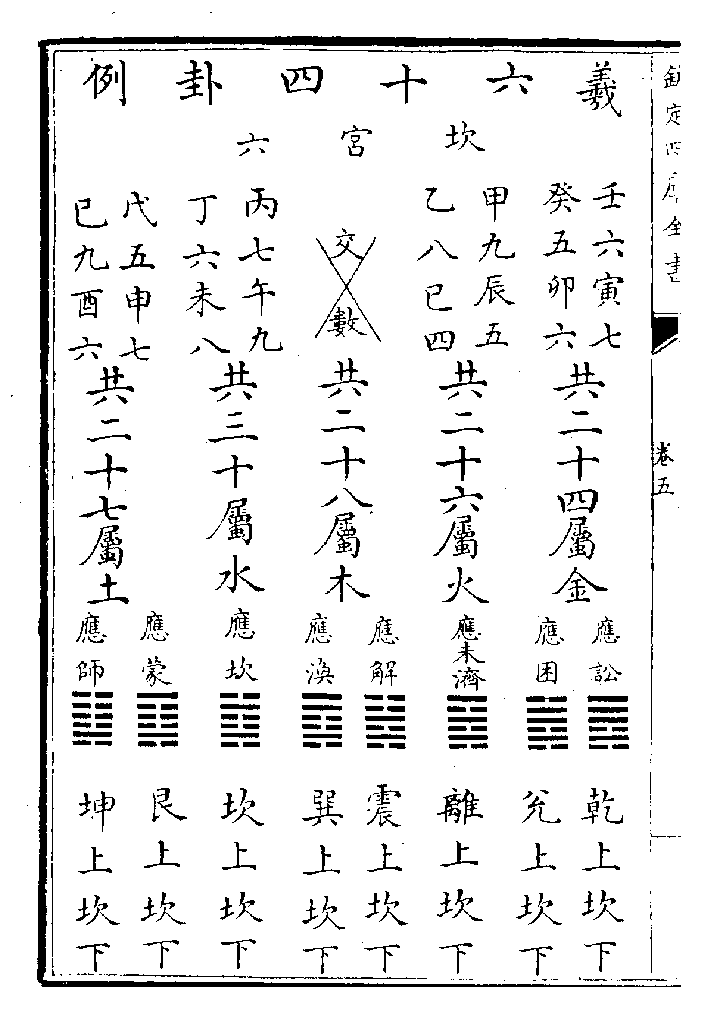 欽定四庫全書
卷五
羲六十四卦例
坎宮六
壬六寅七
癸五卯六
共二十四屬金
應訟
應困
乾上坎下
兊上坎下
甲九辰五
乙八巳四
共二十六屬火
應未濟
離上坎下
交數
共二十八屬木
應解
應渙
震上坎下
巽上坎下
丙七午九
丁六未八
共三十屬水
應坎
坎上坎下
戊五申七
己九酉六
共二十七屬土
應蒙
應師
艮上坎下
坤上坎下